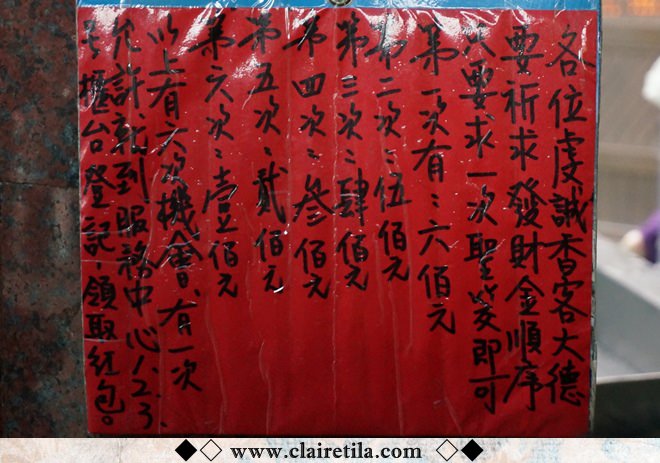 各位虔誠香客大德
要祈求發財金順序
只要求一次聖筊即可
第一次有：六佰元
第二次：伍佰元
第三次：肆佰元
第四次：叁佰元
第五次：貳佰元
第六次：壹佰元
以上有六次機會、有一次
允許就到服務中心1.2.3
號櫃台登記，領取紅包。
www.clairetila.com